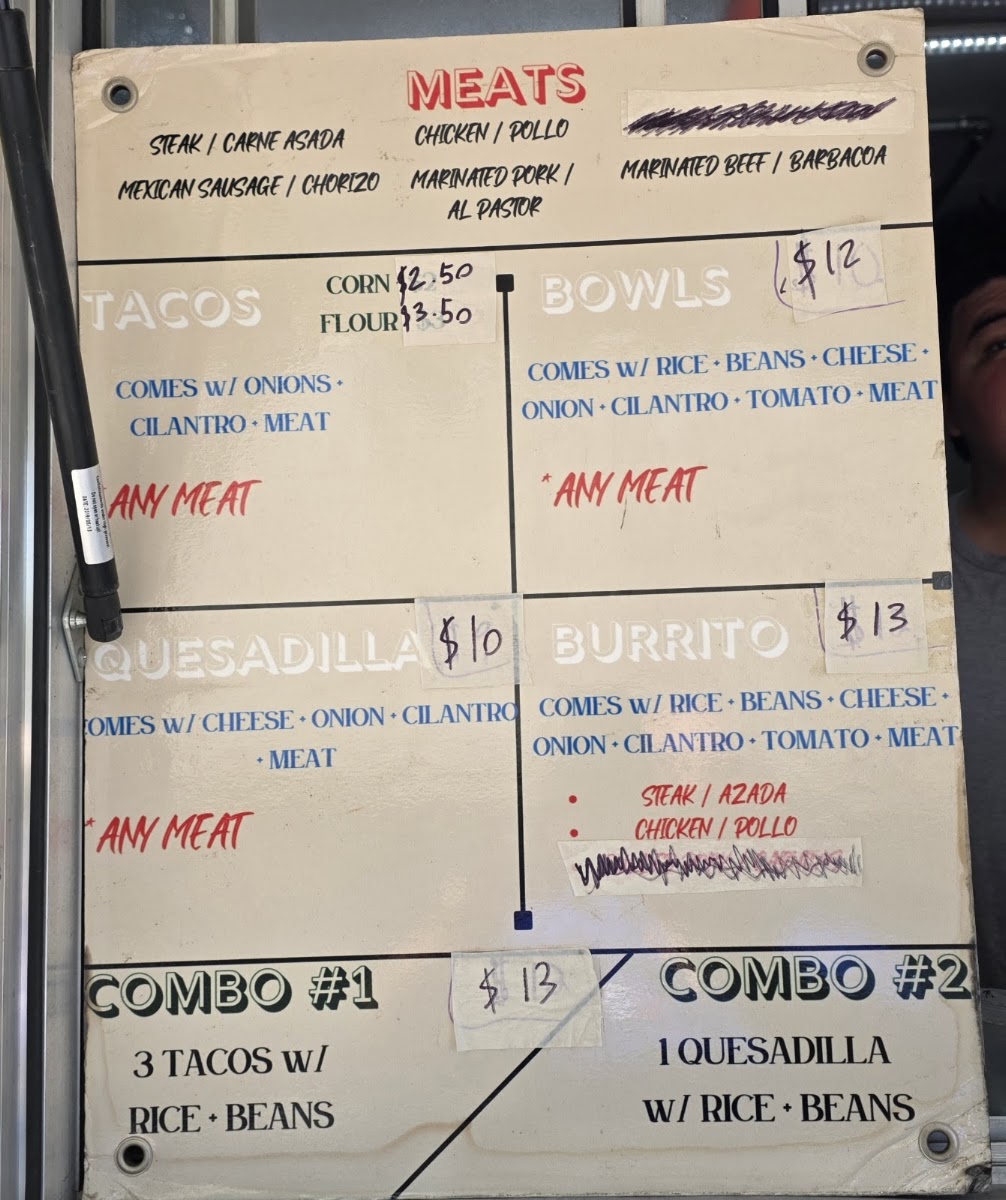 MEATS
STEAK / CARNE ASADA
CHICKEN / POLLO
MEXICAN SAUSAGE / CHORIZO
MARINATED PORK /
AL PASTOR
MARINATED BEEF / BARBACOA
TACOS
CORN $2.50
FLOUR $3.50
COMES W/ ONIONS •
CILANTRO • MEAT
ANY MEAT
BOWLS
$12
COMES W/ RICE • BEANS • CHEESE •
ONION • CILANTRO • TOMATO • MEAT
* ANY MEAT
QUESADILLA
$10
OMES W/ CHEESE • ONION • CILANTRO
• MEAT
* ANY MEAT
BURRITO
$13
COMES W/ RICE • BEANS • CHEESE •
ONION • CILANTRO • TOMATO • MEAT
• STEAK / AZADA
• CHICKEN / POLLO
COMBO #1
$13
3 TACOS W/
RICE • BEANS
COMBO #2
1 QUESADILLA
W/ RICE • BEANS